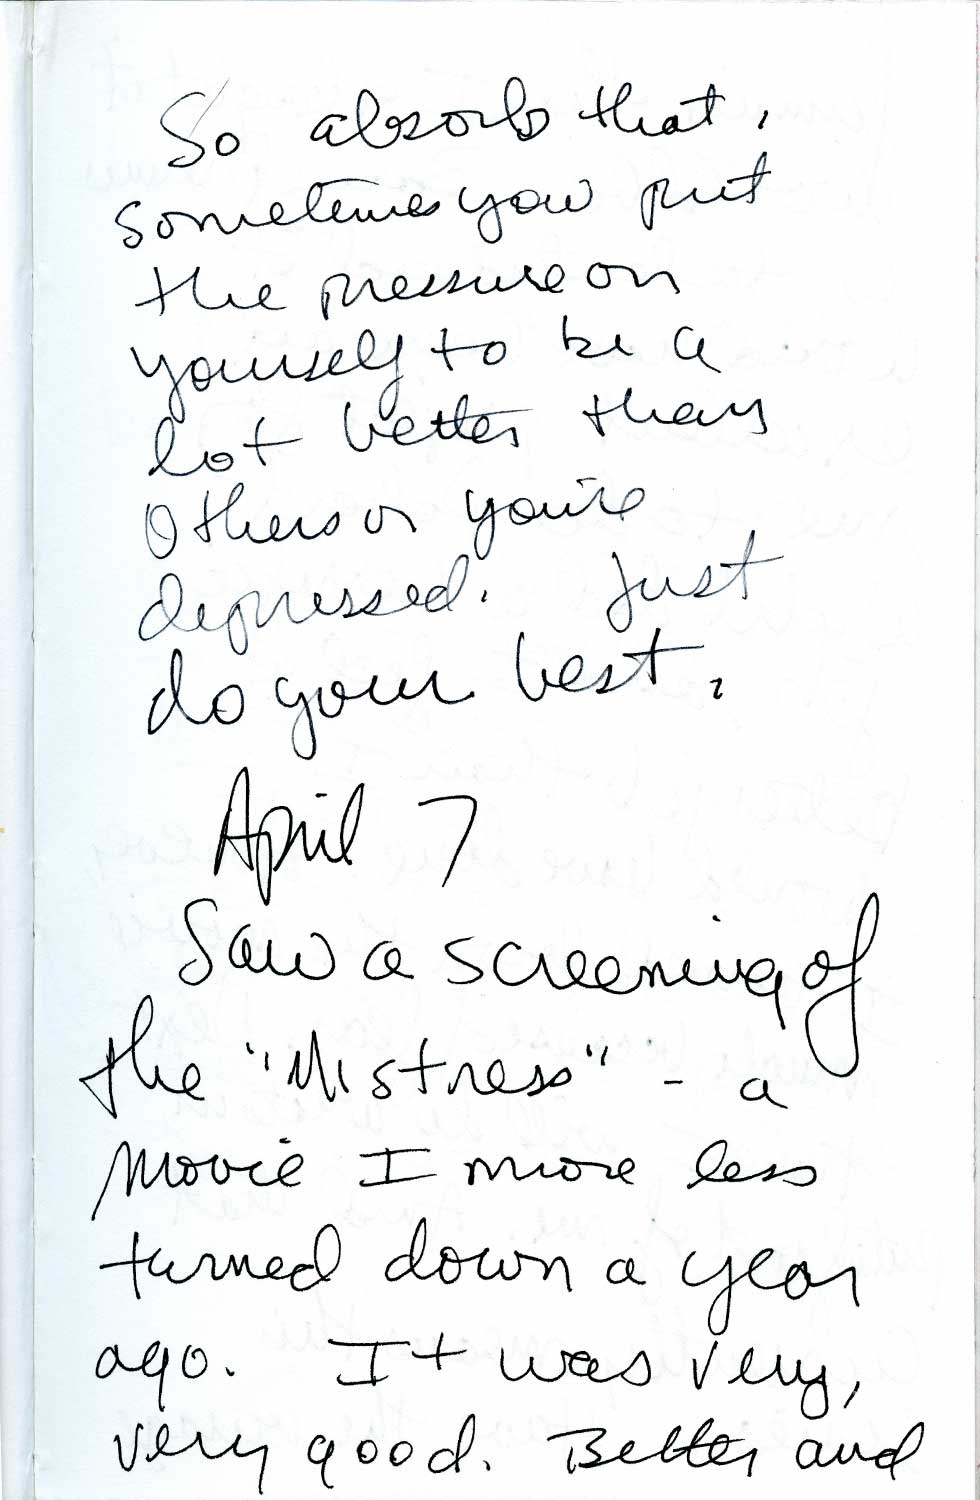 So absorb that.
Sometimes you put
the pressure on
yourself to be a
lot better than
others or you're
depressed. Just
do your best.
April 7
Saw a screening of
the "Mistress" - a
movie I more less
turned down a year
ago. It was very,
very good. Better and